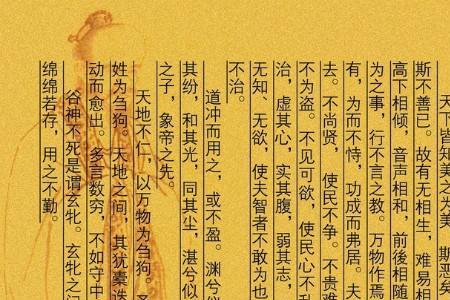 天下皆知美之为美，斯恶矣
斯不善已。故有无相生，难易相
高下相倾，音声相和，前後相随
为之事，行不言之教。万物作焉
有，为而不恃，功成而弗居。夫
去。不尚贤，使民不争。不贵难
不为盗。不见可欲，使民心不乱
治，虚其心，实其腹，弱其志，
无知、无欲，使夫智者不敢为也
不治。
道冲而用之，或不盈。渊兮似
其纷，和其光，同其尘，湛兮似
之子，象帝之先。
天地不仁，以万物为刍狗。圣
姓为刍狗。天地之间，其犹橐迭
动而愈出。多言数穷，不如守中
谷神不死是谓玄牝。玄牝之门
绵绵若存，用之不勤。